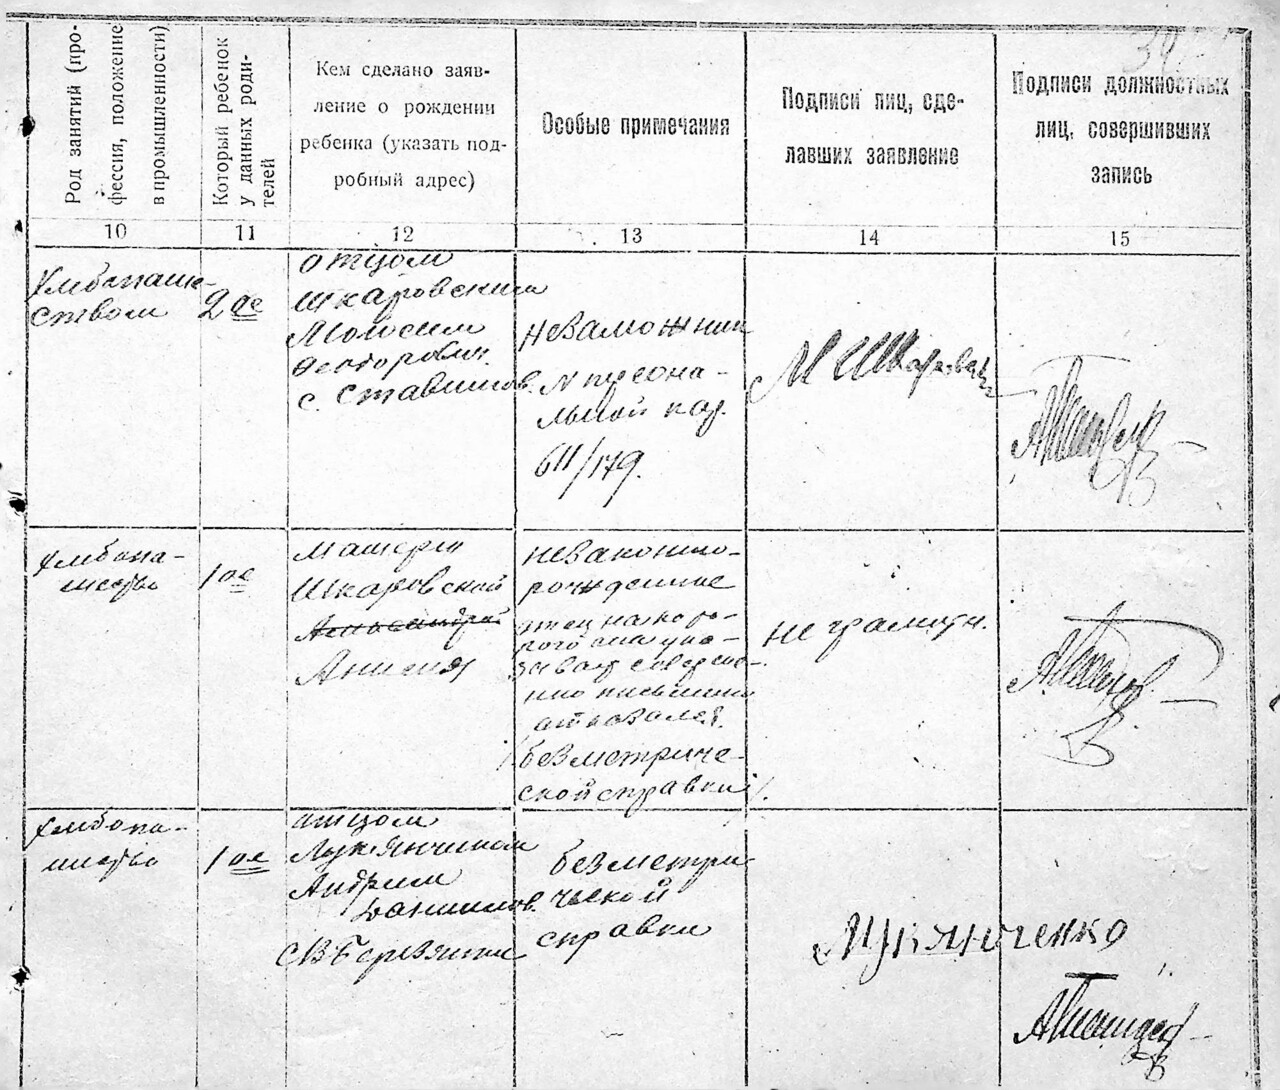 34
Род занятий (про-
фессия, положение
в промышленности)
Который ребенок
у данных роди-
телей
Кем сделано заяв-
ление о рождении
ребенка (указать под-
робный адрес)
Особые примечания
Подписи лиц, сде-
лавших заявление
Подписи должностных
лиц, совершивших
запись
10
11
12
13
14
15
Хлебопаше-
ством
2 ое
отцом
Шкаровским
Мойсеем
Федорович.
с. Ставищов.
незаможник
N персона-
льной кар.
611/179.
Хлебопа-
шество
1 ое
матерю
Шкаровской
Анисия
незаконно-
рожденное
отец на кото-
рого она ука-
зывает
отказался.
без метриче-
ской справки
не грамотн.
Хлебопа-
шество
1 ое
отцом
Лукянчиком
Андреем
Данилов.
без метри
ческой
справки
Лукянченко